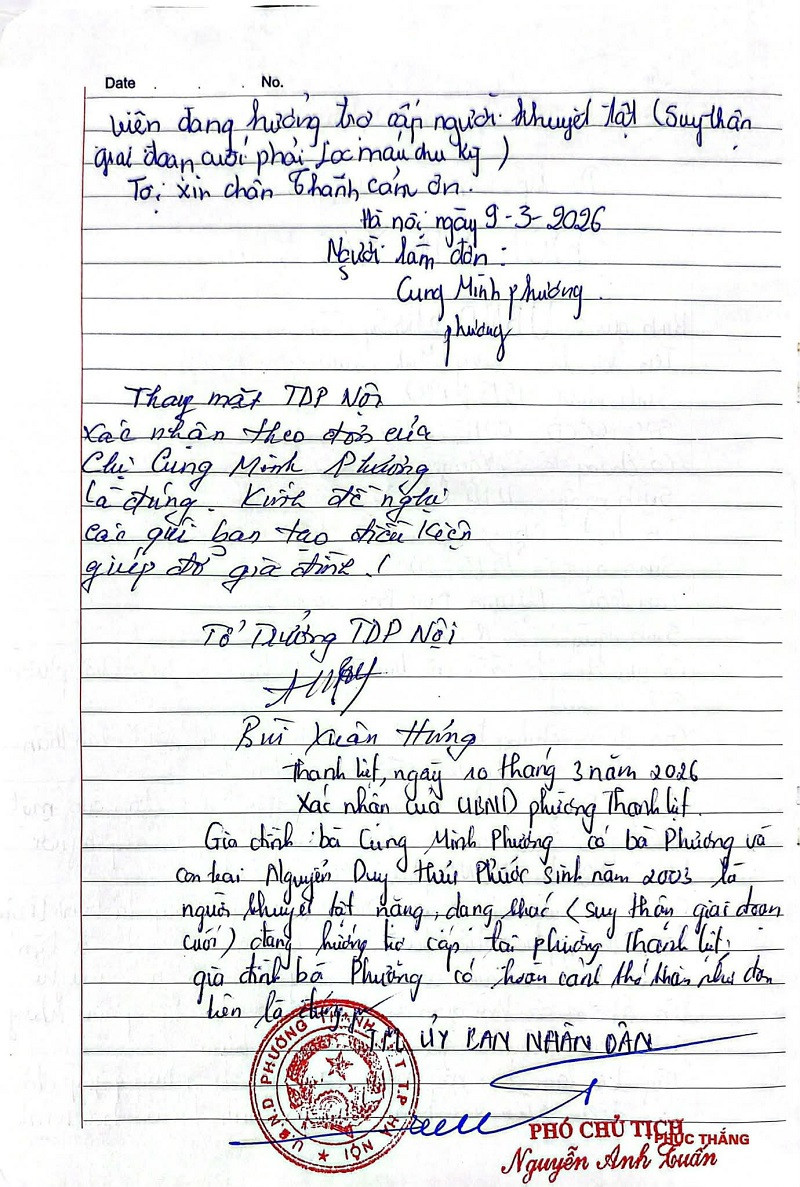 Date . . . No.
viên đang hưởng trợ cấp người khuyết tật (Suy thận
giai đoạn cuối phải Lọc máu chu kỳ)
Tôi xin chân thành cảm ơn.
Hà nội, ngày 9-3-2026
Người làm đơn:
Cung Minh Phương.
Phương
Thay mặt TDP Nội
Xác nhận theo đơn của
Chị Cung Minh Phương
là đúng. Kính đề nghị
các quí ban tạo điều kiện
giúp đỡ gia đình!
Tổ Trưởng TDP Nội
Bùi Xuân Hưng
Thanh liệt, ngày 10 tháng 3 năm 2026
Xác nhận của UBND phường Thanh liệt.
Gia đình bà Cung Minh Phương có bà Phương và
con trai Nguyễn Duy Phước sinh năm 2003 là
người khuyết tật nặng, dạng khác (suy thận giai đoạn
cuối) đang hưởng trợ cấp tại phường Thanh liệt;
gia đình bà Phương có hoàn cảnh khó khăn như đơn
trên là đúng
T.M ỦY BAN NHÂN DÂN
U.B.N.D PHƯỜNG THANH LIỆT T.P. HÀ NỘI
PHÓ CHỦ TỊCH
PHÚC THẮNG
Nguyễn Anh Tuấn